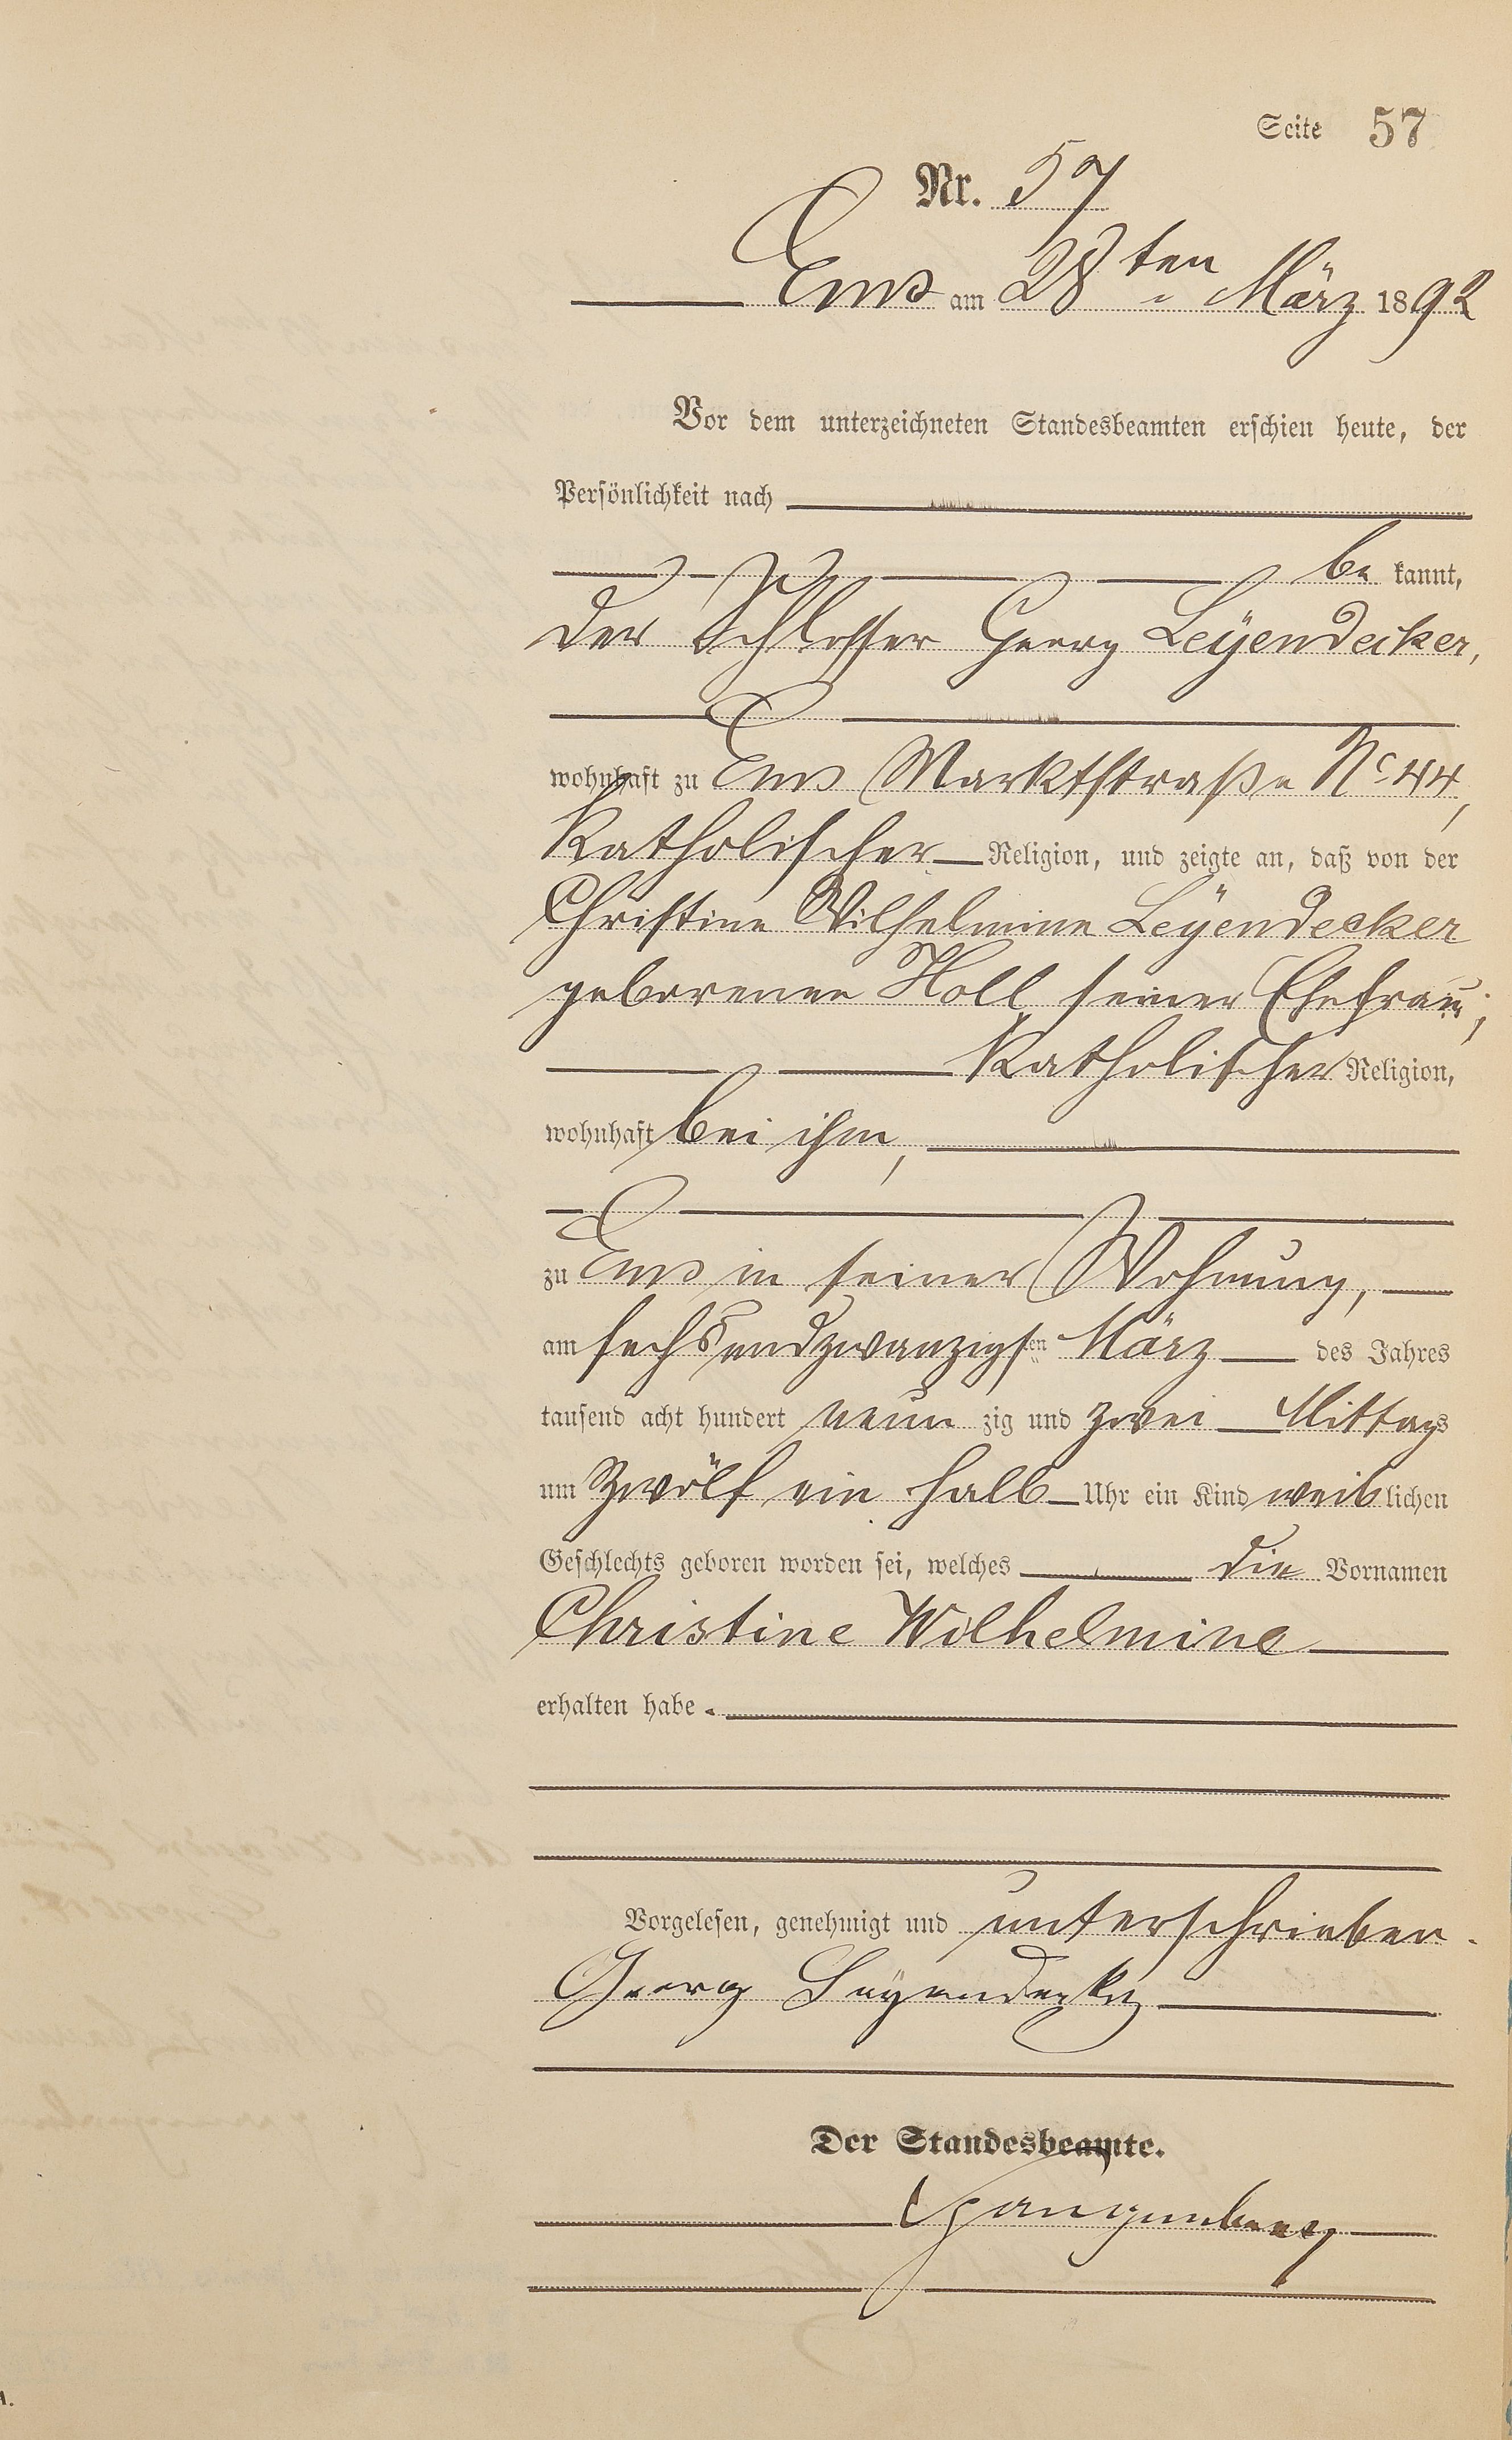 Seite 57
Nr. 57
Ems am 28ten März 1892
Vor dem unterzeichneten Standesbeamten erschien heute, der
Persönlichkeit nach
bekannt,
der Schlosser Georg Leÿendecker,
wohnhaft zu Ems Marktstraße No 44,
Katholischer Religion, und zeigte an, daß von der
Christine Wilhelmine Leÿendecker
geborenen Noll, seiner Ehefrau,
Katholischer Religion,
wohnhaft bei ihm,
zu Ems in seiner Wohnung,
am sechsundzwanzigsten März des Jahres
tausend acht hundert neunzig und zwei Mittags
um zwölf ein halb Uhr ein Kind weiblichen
Geschlechts geboren worden sei, welches die Vornamen
Christine Wilhelmine
erhalten habe.
Vorgelesen, genehmigt und unterschrieben.
Georg Leÿendecker
Der Standesbeamte.